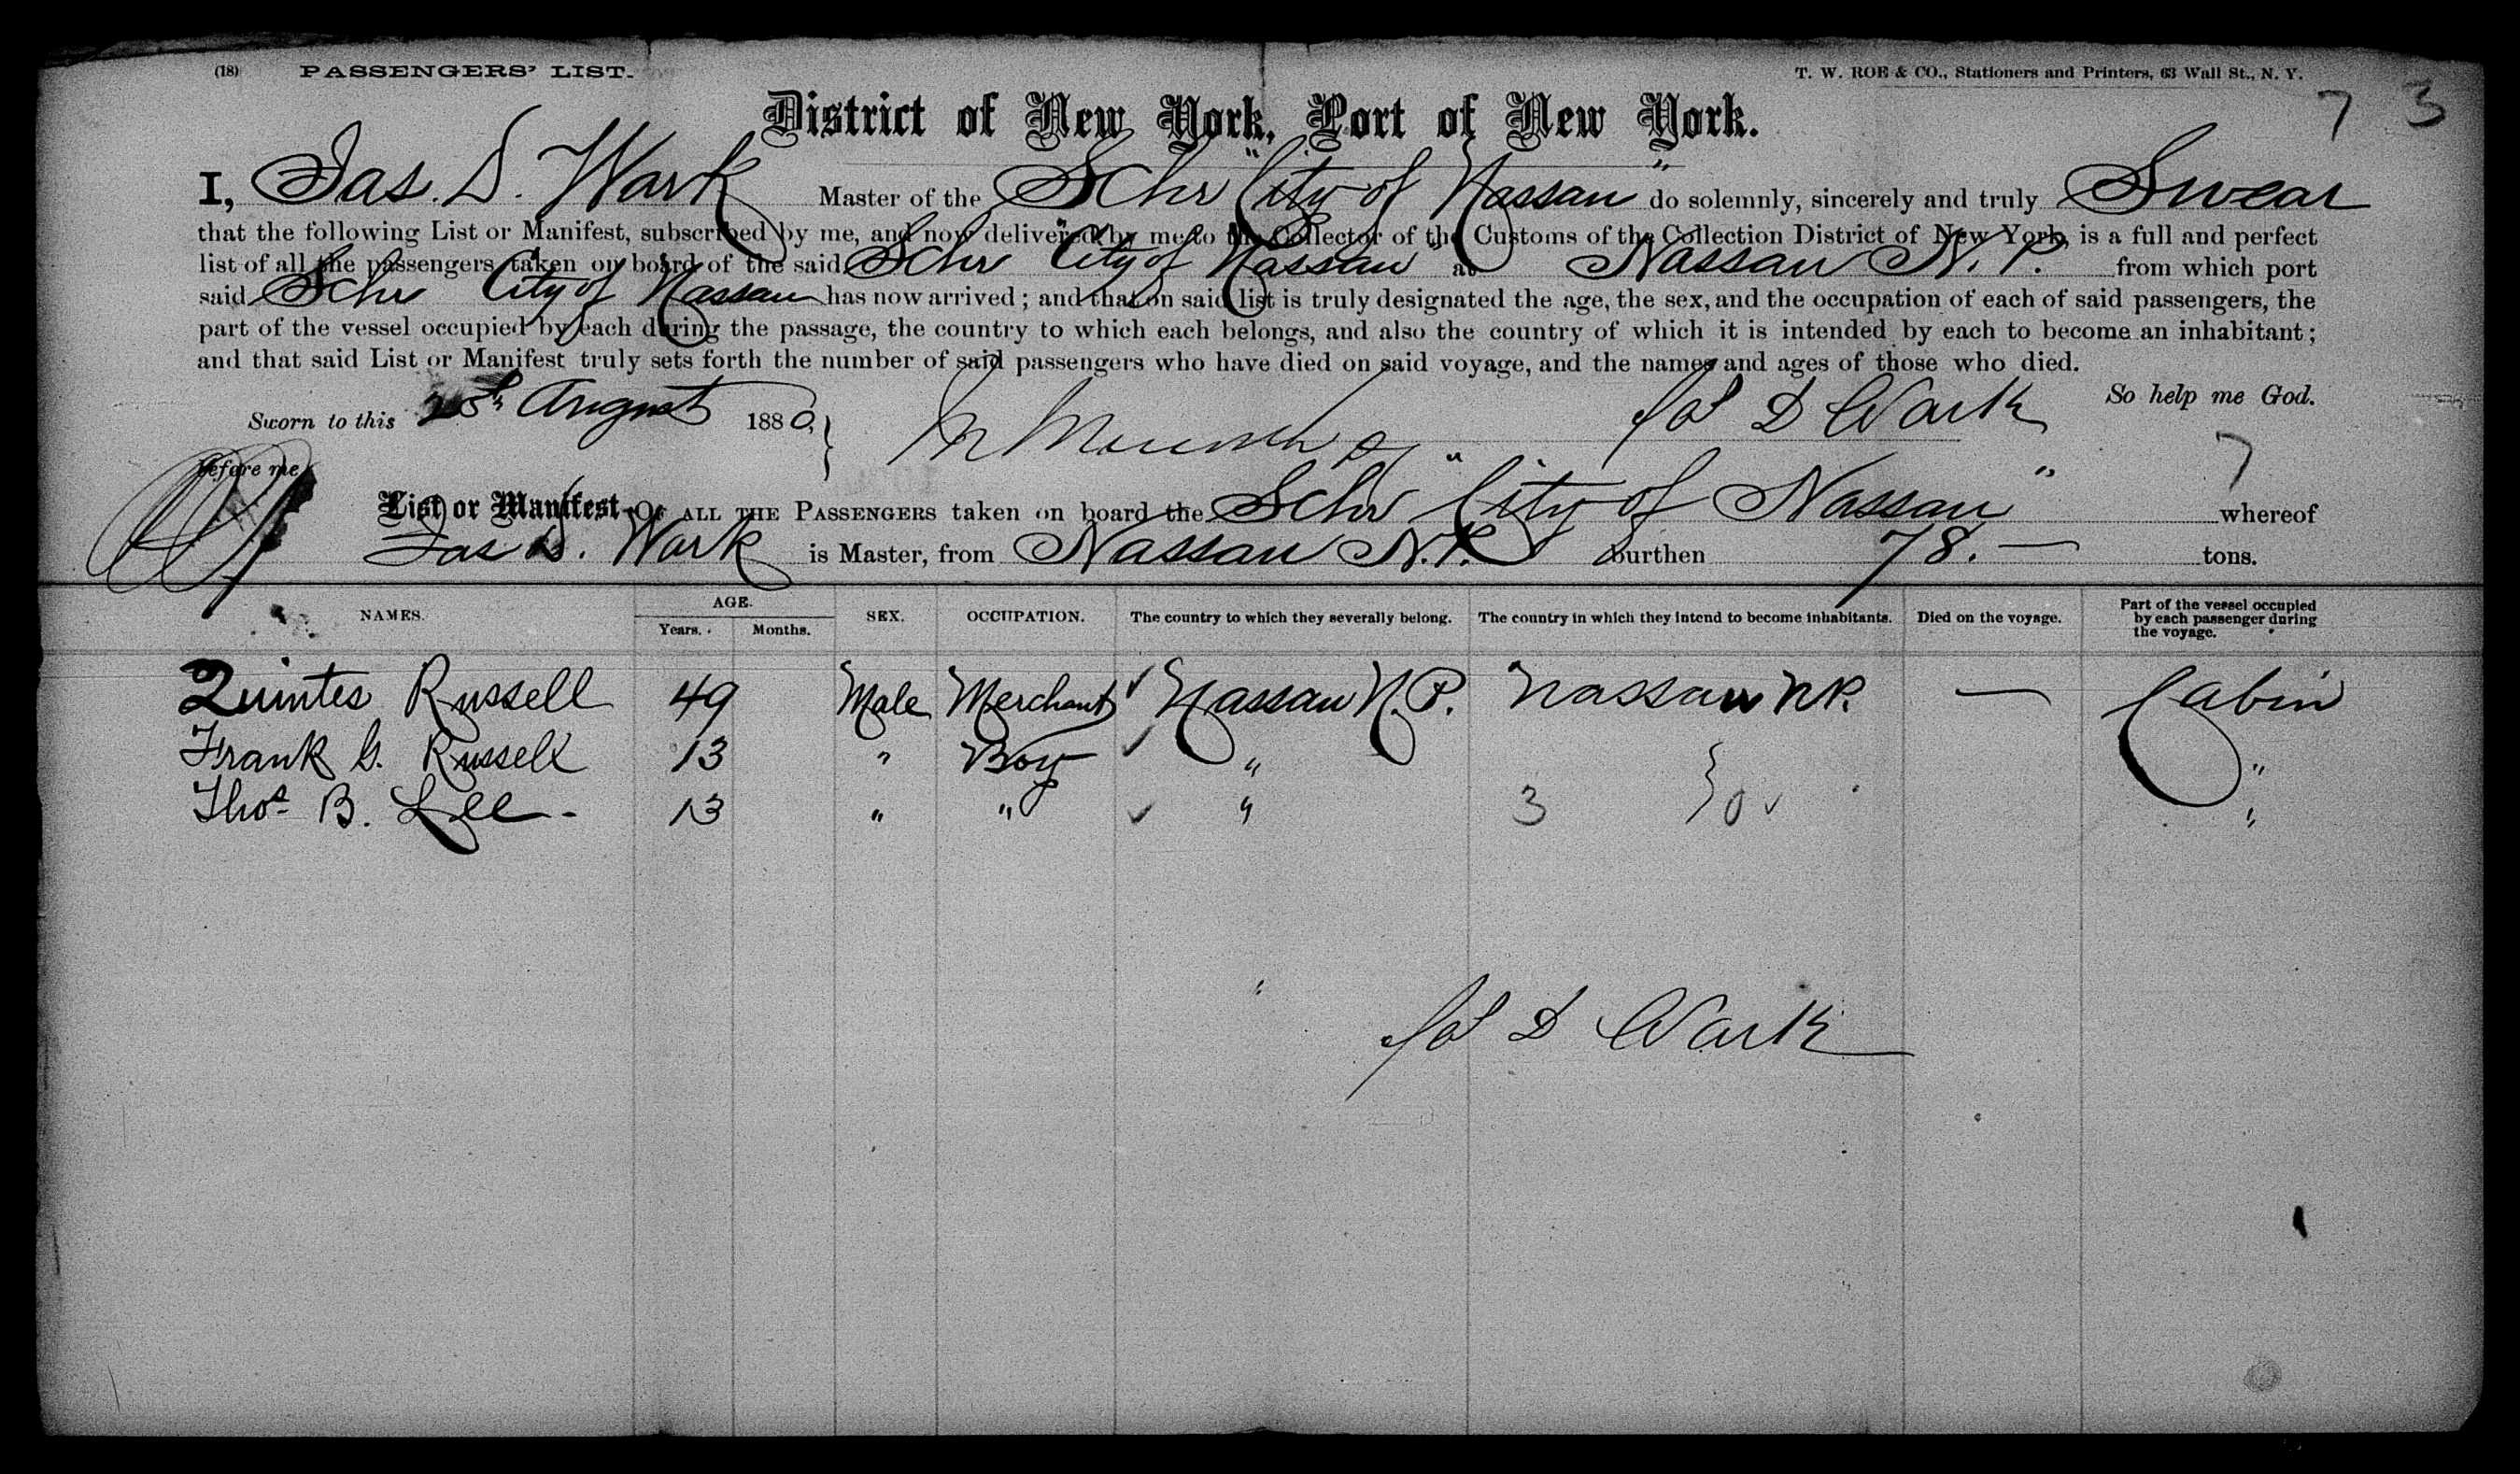 (18) PASSENGERS' LIST. T. W. ROE & CO., Stationers and Printers, 63 Wall St., N. Y.
7 3
District of New York, Port of New York.
I, Jas. D. Wark Master of the Schr "City of Nassau" do solemnly, sincerely and truly Swear
that the following List or Manifest, subscribed by me, and now delivered by me to the Collector of the Customs of the Collection District of New York, is a full and perfect
list of all the passengers taken on board of the said Schr "City of Nassau" at Nassau N. P. from which port
said Schr City of Nassau has now arrived; and that on said list is truly designated the age, the sex, and the occupation of each of said passengers, the
part of the vessel occupied by each during the passage, the country to which each belongs, and also the country of which it is intended by each to become an inhabitant;
and that said List or Manifest truly sets forth the number of said passengers who have died on said voyage, and the names and ages of those who died.
So help me God.
Sworn to this August 1880. Jas D Wark
Before me
7
List or Manifest OF ALL THE PASSENGERS taken on board the Schr "City of Nassau" whereof
Jas D. Wark is Master, from Nassau N.P. burthen 78.— tons.
NAMES. AGE. Years. Months. SEX. OCCUPATION. The country to which they severally belong. The country in which they intend to become inhabitants. Died on the voyage. Part of the vessel occupied by each passenger during the voyage.
Quintes Russell 49 Male Merchant ✓ Nassau N.P. Nassau N.P. — Cabin
Frank G. Russell 13 " Boy ✓ " "
Thos B. Lee - 13 " " ✓ " 3 } 0 ✓ "
Jas D Wark